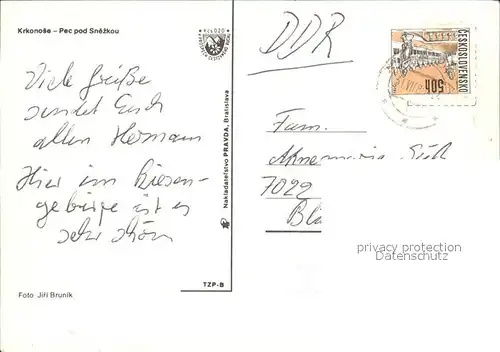 Krkonoše – Pec pod Sněžkou
Viele Grüße
sendet Euch
allen Hermann
Hier im Riesen-
gebirge ist es
sehr schön
Foto Jiří Bruník
TZP-B
Nakladatelstvo PRAVDA, Bratislava
DDR
ČESKOSLOVENSKO
50h
Fam.
7022
privacy protection
Datenschutz